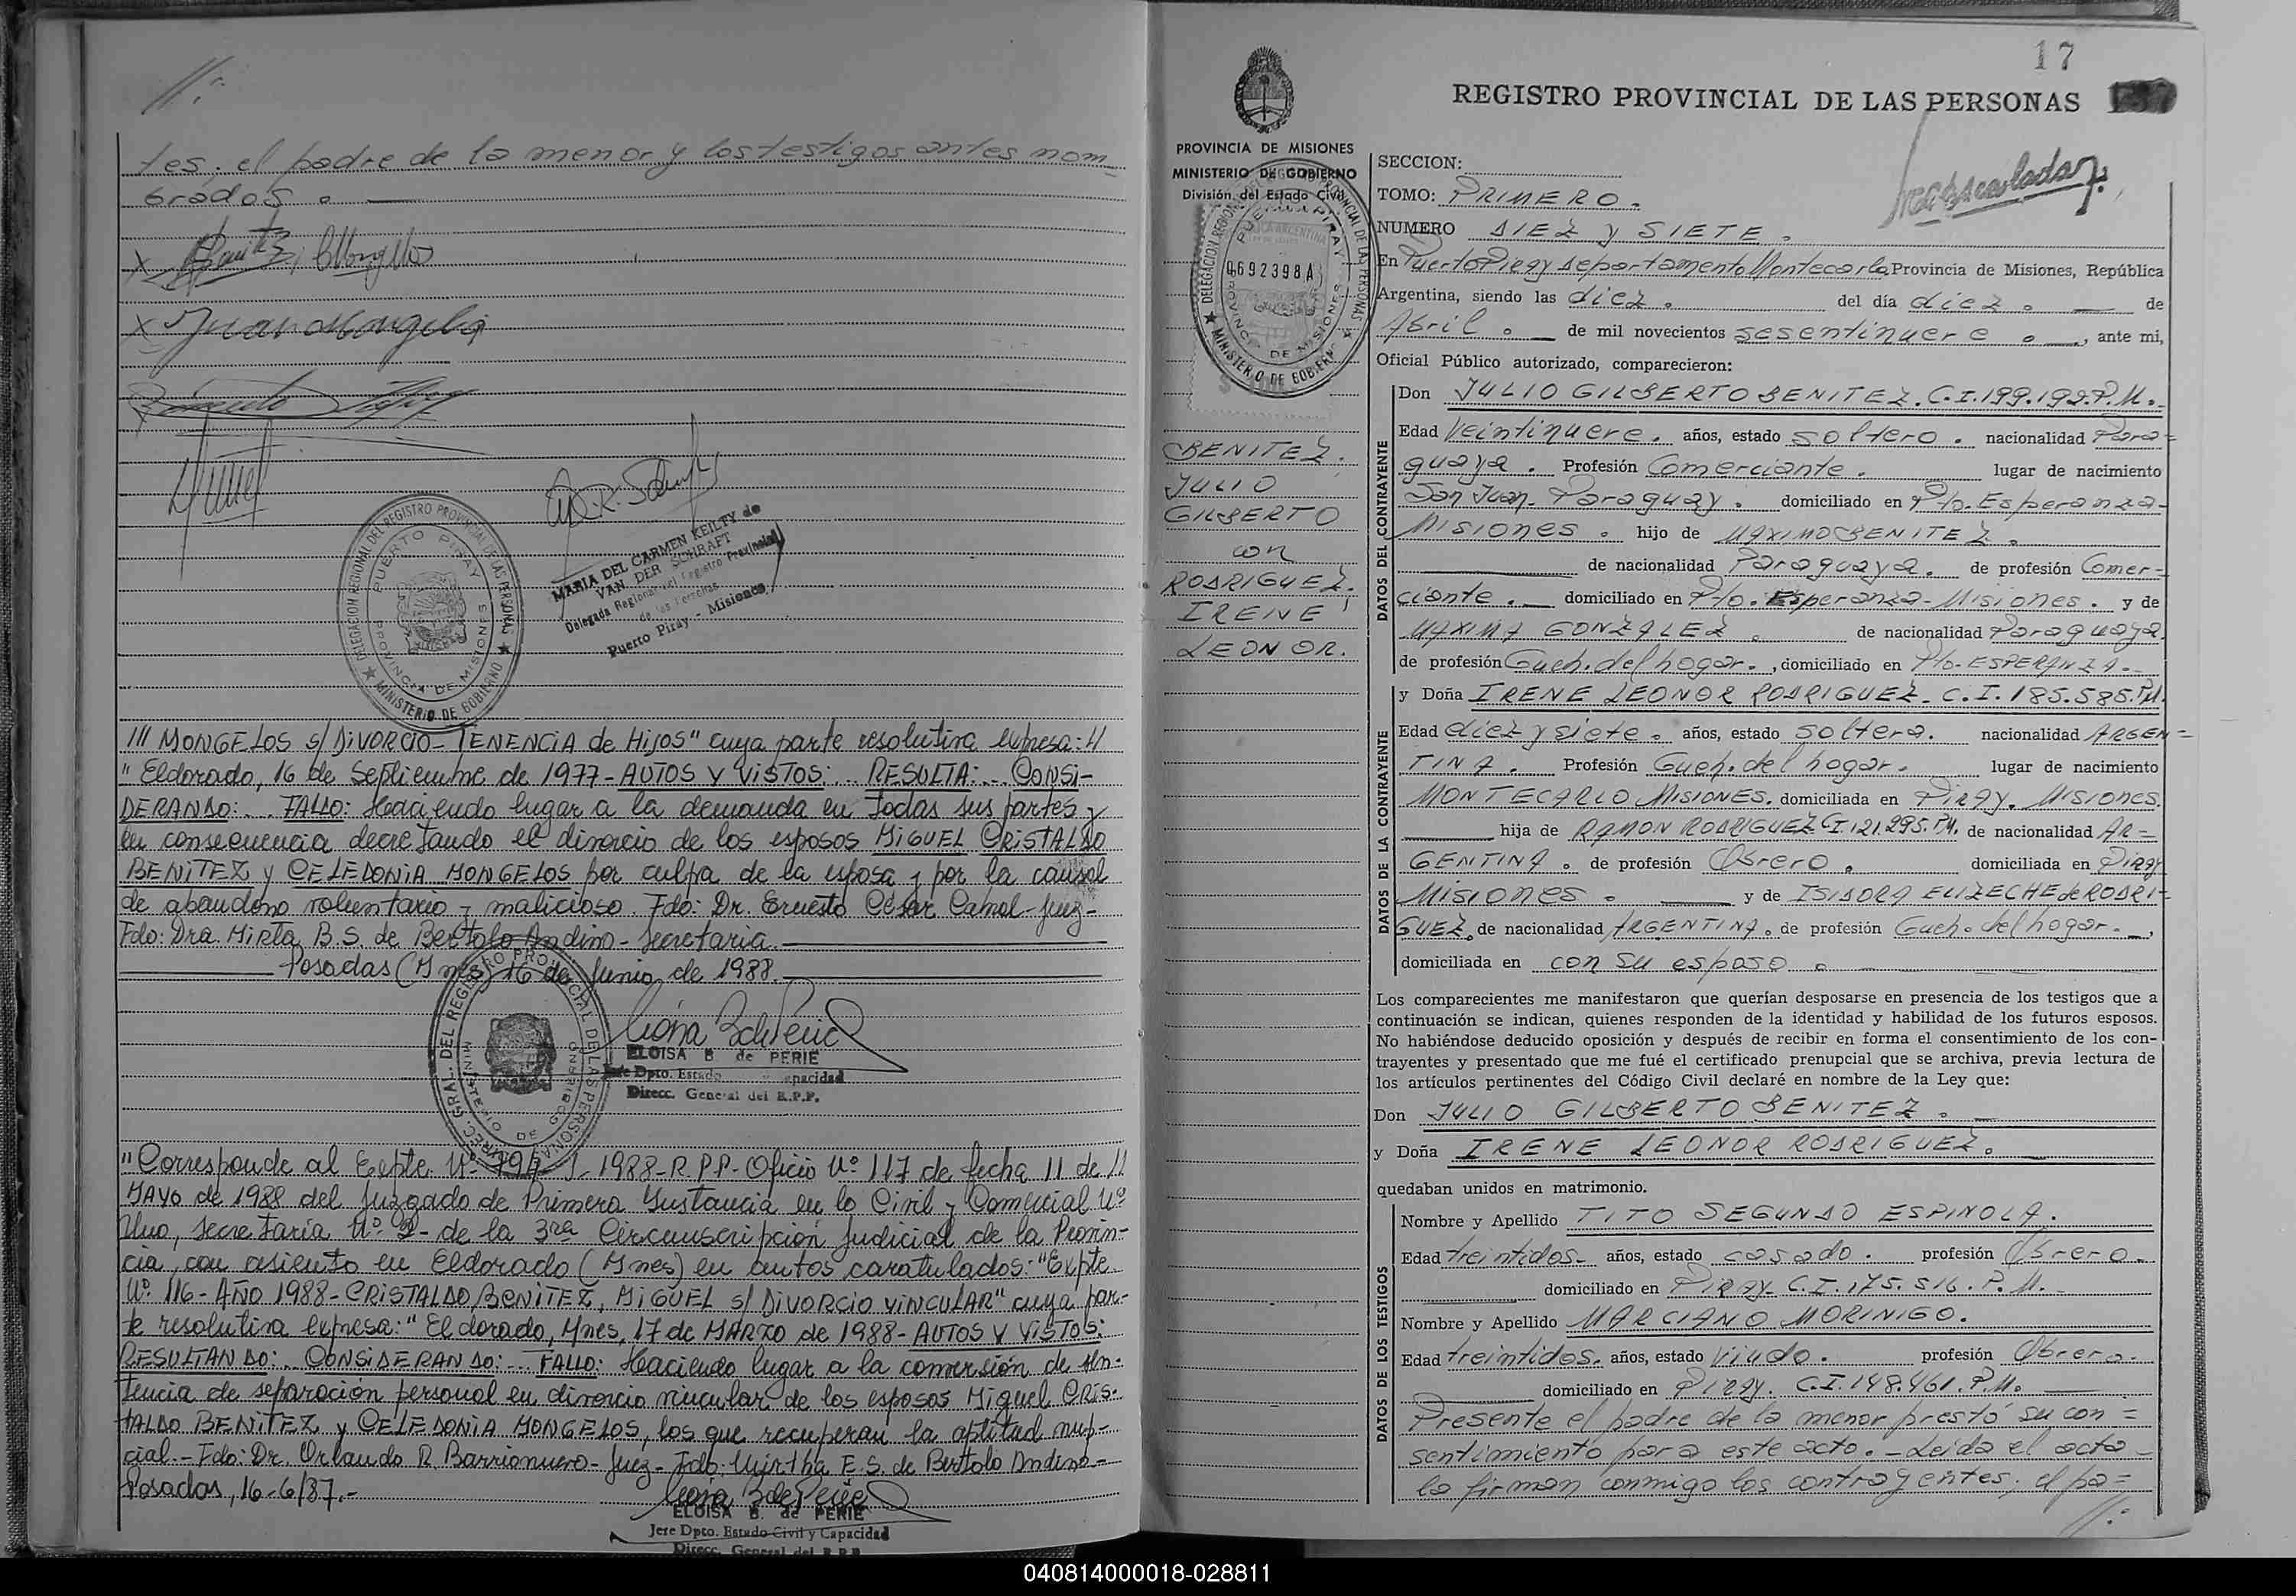 //:
tes; el padre de la menor y los testigos antes nom-
brados.
X Benitez,
X Juan Mongelós
MARIA DEL CARMEN KEILTY de
VAN DER SCHRAFT
Delegada Regional del Registro Provincial
de las Personas
Puerto Piray - Misiones
DELEGACION REGIONAL DEL REGISTRO PROVINCIAL DE LAS PERSONAS
PUERTO PIRAY
PROVINCIA DE MISIONES
MINISTERIO DE GOBIERNO
/// MONGELOS s/ DiVORCiO - TENENCiA de HiJOS" cuya parte resolutiva expresa: //
" Eldorado, 16 de Septiembre de 1977 - AUTOS Y ViSTOS: .. RESULTA: ... CONSi-
DERANDO: .. FALLO: Haciendo lugar a la demanda en todas sus partes y
en consecuencia decretando el divorcio de los esposos MiGUEL CRiSTALDO
BENiTEZ y CELEDONiA MONGELOS por culpa de la esposa y por la causal
de abandono voluntario y malicioso. Fdo: Dr. Ernesto César Camol - Juez-
Fdo: Dra. Mirta B.S. de Bertolo Andino - Secretaria.
Posadas (Mnes) 16 de Junio de 1988.
ELOISA B. de PERIE
Jefe Dpto. Estado y Capacidad
Direcc. General del R.P.P.
"Corresponde al Expte. Nº 794- J- 1988-R.P.P- Oficio Nº 117 de fecha 11 de //
MAYO de 1988 del Juzgado de Primera Instancia en lo Civil y Comercial Nº
Uno, Secretaría Nº 2- de la 3ra Circunscripción Judicial de la Provin-
cia, con asiento en Eldorado (Mnes) en autos caratulados: "Expte.
Nº 116 - AÑO 1988 - CRiSTALDO BENiTEZ, MiGUEL s/ DiVORCiO ViNCULAR" cuya par-
te resolutiva expresa: " Eldorado, Mnes, 17 de MARZO de 1988 - AUTOS Y ViSTOS:
RESULTANDO: .. CONSiDERANDO: ... FALLO: Haciendo lugar a la conversión de sen-
tencia de separación personal en divorcio vincular de los esposos Miguel CRiS-
TALDO BENiTEZ y CELEDONiA MONGELOS, los que recuperan la aptitud nup-
cial. - Fdo: Dr. Orlando R. Barrionuevo - Juez - Fdo: Mirtha E.S. de Bertolo Andino -
Posadas, 16-6/87.-
ELOISA B. de PERIE
Jefe Dpto. Estado Civil y Capacidad
Direcc. General del R.P.P.
17
REGISTRO PROVINCIAL DE LAS PERSONAS
PROVINCIA DE MISIONES
MINISTERIO DE GOBIERNO
División del Estado Civil
0692398A
BENITEZ.
JULIO
GILBERTO
con
RODRIGUEZ.
IRENE
LEONOR.
SECCION:
TOMO: PRIMERO.
NUMERO DIEZ y SIETE.
En Puerto Piray departamento Montecarlo Provincia de Misiones, República
Argentina, siendo las diez. del día diez. de
Abril. de mil novecientos sesentinueve., ante mi,
Oficial Público autorizado, comparecieron:
DATOS DEL CONTRAYENTE
Don JULIO GILBERTO BENITEZ. C.I.199.192.P.M.
Edad Veintinueve. años, estado soltero. nacionalidad Para=
guaya. Profesión Comerciante. lugar de nacimiento
San Juan. Paraguay. domiciliado en Pto. Esperanza-
Misiones. hijo de MAXIMO BENITEZ.
de nacionalidad Paraguaya. de profesión Comer-
ciante. domiciliado en Pto. Esperanza - Misiones. y de
MAXIMA GONZALEZ. de nacionalidad Paraguaya.
de profesión Cueh. del hogar., domiciliado en Pto-ESPERANZA.-
DATOS DE LA CONTRAYENTE
y Doña IRENE LEONOR RODRIGUEZ. C.I. 185.585. P.M.
Edad diez y siete. años, estado soltera. nacionalidad ARGEN=
TINA. Profesión Cueh. del hogar. lugar de nacimiento
MONTECARLO MISIONES. domiciliada en PIRAY. Misiones.
hija de RAMON RODRIGUEZ C.I. 121.295. P.M. de nacionalidad AR=
GENTINA. de profesión Obrero. domiciliada en PIRAY
Misiones. y de ISIDORA ELIZECHE de RODRI=
GUEZ. de nacionalidad ARGENTINA. de profesión Cueh. del hogar.,
domiciliada en con su esposo.
Los comparecientes me manifestaron que querían desposarse en presencia de los testigos que a
continuación se indican, quienes responden de la identidad y habilidad de los futuros esposos.
No habiéndose deducido oposición y después de recibir en forma el consentimiento de los con-
trayentes y presentado que me fué el certificado prenupcial que se archiva, previa lectura de
los artículos pertinentes del Código Civil declaré en nombre de la Ley que:
Don JULIO GILBERTO BENITEZ.
y Doña IRENE LEONOR RODRIGUEZ.
quedaban unidos en matrimonio.
DATOS DE LOS TESTIGOS
Nombre y Apellido TITO SEGUNDO ESPINOLA.
Edad treintidos- años, estado casado. profesión Obrero.
domiciliado en PIRAY. C.I. 175.516. P.M.
Nombre y Apellido MARCIANO MORINIGO.
Edad treintidos. años, estado Viudo. profesión Obrero.
domiciliado en PIRAY. C.I. 148.461. P.M.
Presente el padre de la menor prestó su con=
sentimiento para este acto. - Leida el acta
la firman conmigo los contrayentes; el pa=
//:
040814000018-028811